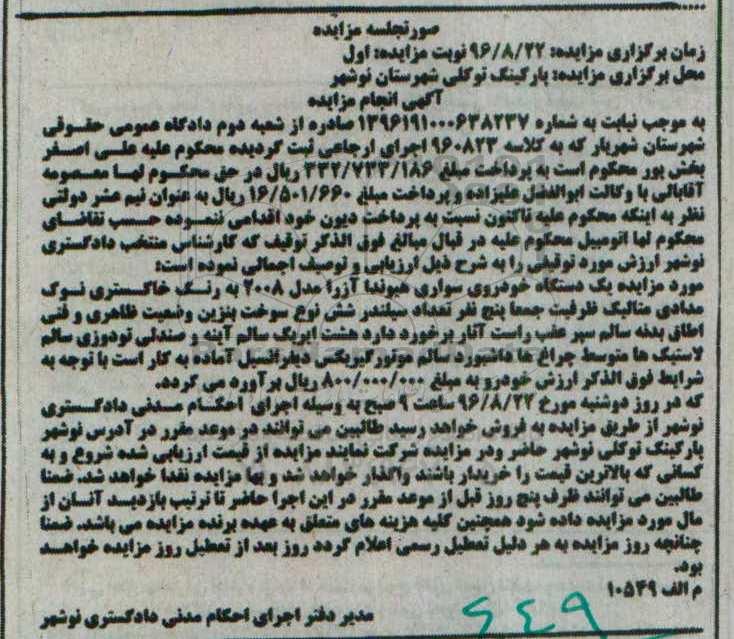 صورتجلسه مزایده
زمان برگزاری مزایده: ۹۶/۸/۲۲ نوبت مزایده: اول
محل برگزاری مزایده: پارکینگ توکلی شهرستان نوشهر
آگهی انجام مزایده
به موجب نیابت به شماره ۱۳۹۶۱۹۱۰۰۰۶۳۸۲۳۷ صادره از شعبه دوم دادگاه عمومی حقوقی
شهرستان شهریار که به کلاسه ۹۶۰۸۲۳ اجرای ارجاعی ثبت گردیده محکوم علیه علی اصغر
بخش پور محکوم است به پرداخت مبلغ ۳۳۲/۷۳۳/۱۸۶ ریال در حق محکوم لها معصومه
آقابالی با وکالت ابوالفضل علیزاده و پرداخت مبلغ ۱۶/۵۰۱/۶۶۰ ریال به عنوان نیم عشر دولتی
نظر به اینکه محکوم علیه تاکنون نسبت به پرداخت دیون خود اقدامی ننموده حسب تقاضای
محکوم لها اتومبیل محکوم علیه در قبال مبالغ فوق الذکر توقیف که کارشناس منتخب دادگستری
نوشهر ارزش مورد توقیفی را به شرح ذیل ارزیابی و توصیف اجمالی نموده است:
مورد مزایده یک دستگاه خودروی سواری هیوندا آزرا مدل ۲۰۰۸ به رنگ خاکستری نوک
مدادی متالیک ظرفیت جمعا پنج نفر تعداد سیلندر شش نوع سوخت بنزین وضعیت ظاهری و فنی
اطاق بدنه سالم سپر عقب راست آثار برخورد دارد هشت ایربک سالم آینه و صندلی تودوزی سالم
لاستیک ها متوسط چراغ ها داشبورد سالم موتور گیربکس دیفرانسیل آماده به کار است با توجه به
شرایط فوق الذکر ارزش خودرو به مبلغ ۸۰۰/۰۰۰/۰۰۰ ریال برآورد می گردد.
که در روز دوشنبه مورخ ۹۶/۸/۲۲ ساعت ۹ صبح به وسیله اجرای احکام مدنی دادگستری
نوشهر از طریق مزایده به فروش خواهد رسید طالبین می توانند در موعد مقرر در آدرس نوشهر
پارکینگ توکلی نوشهر حاضر ودر مزایده شرکت نمایند مزایده از قیمت ارزیابی شده شروع و به
کسانی که بالاترین قیمت را خریدار باشند واگذار خواهد شد و بها مزایده نقدا خواهد شد. ضمنا
طالبین می توانند ظرف پنج روز قبل از موعد مقرر در این اجرا حاضر تا ترتیب بازدید آنسان از
مال مورد مزایده داده شود همچنین کلیه هزینه های متعلق به عهده برنده مزایده می باشد. ضمنا
چنانچه روز مزایده به هر دلیل تعطیل رسمی اعلام گردد روز بعد از تعطیل روز مزایده خواهد
بود.
م الف ۱۰۵۴۹
مدیر دفتر اجرای احکام مدنی دادگستری نوشهر
۶۴۹